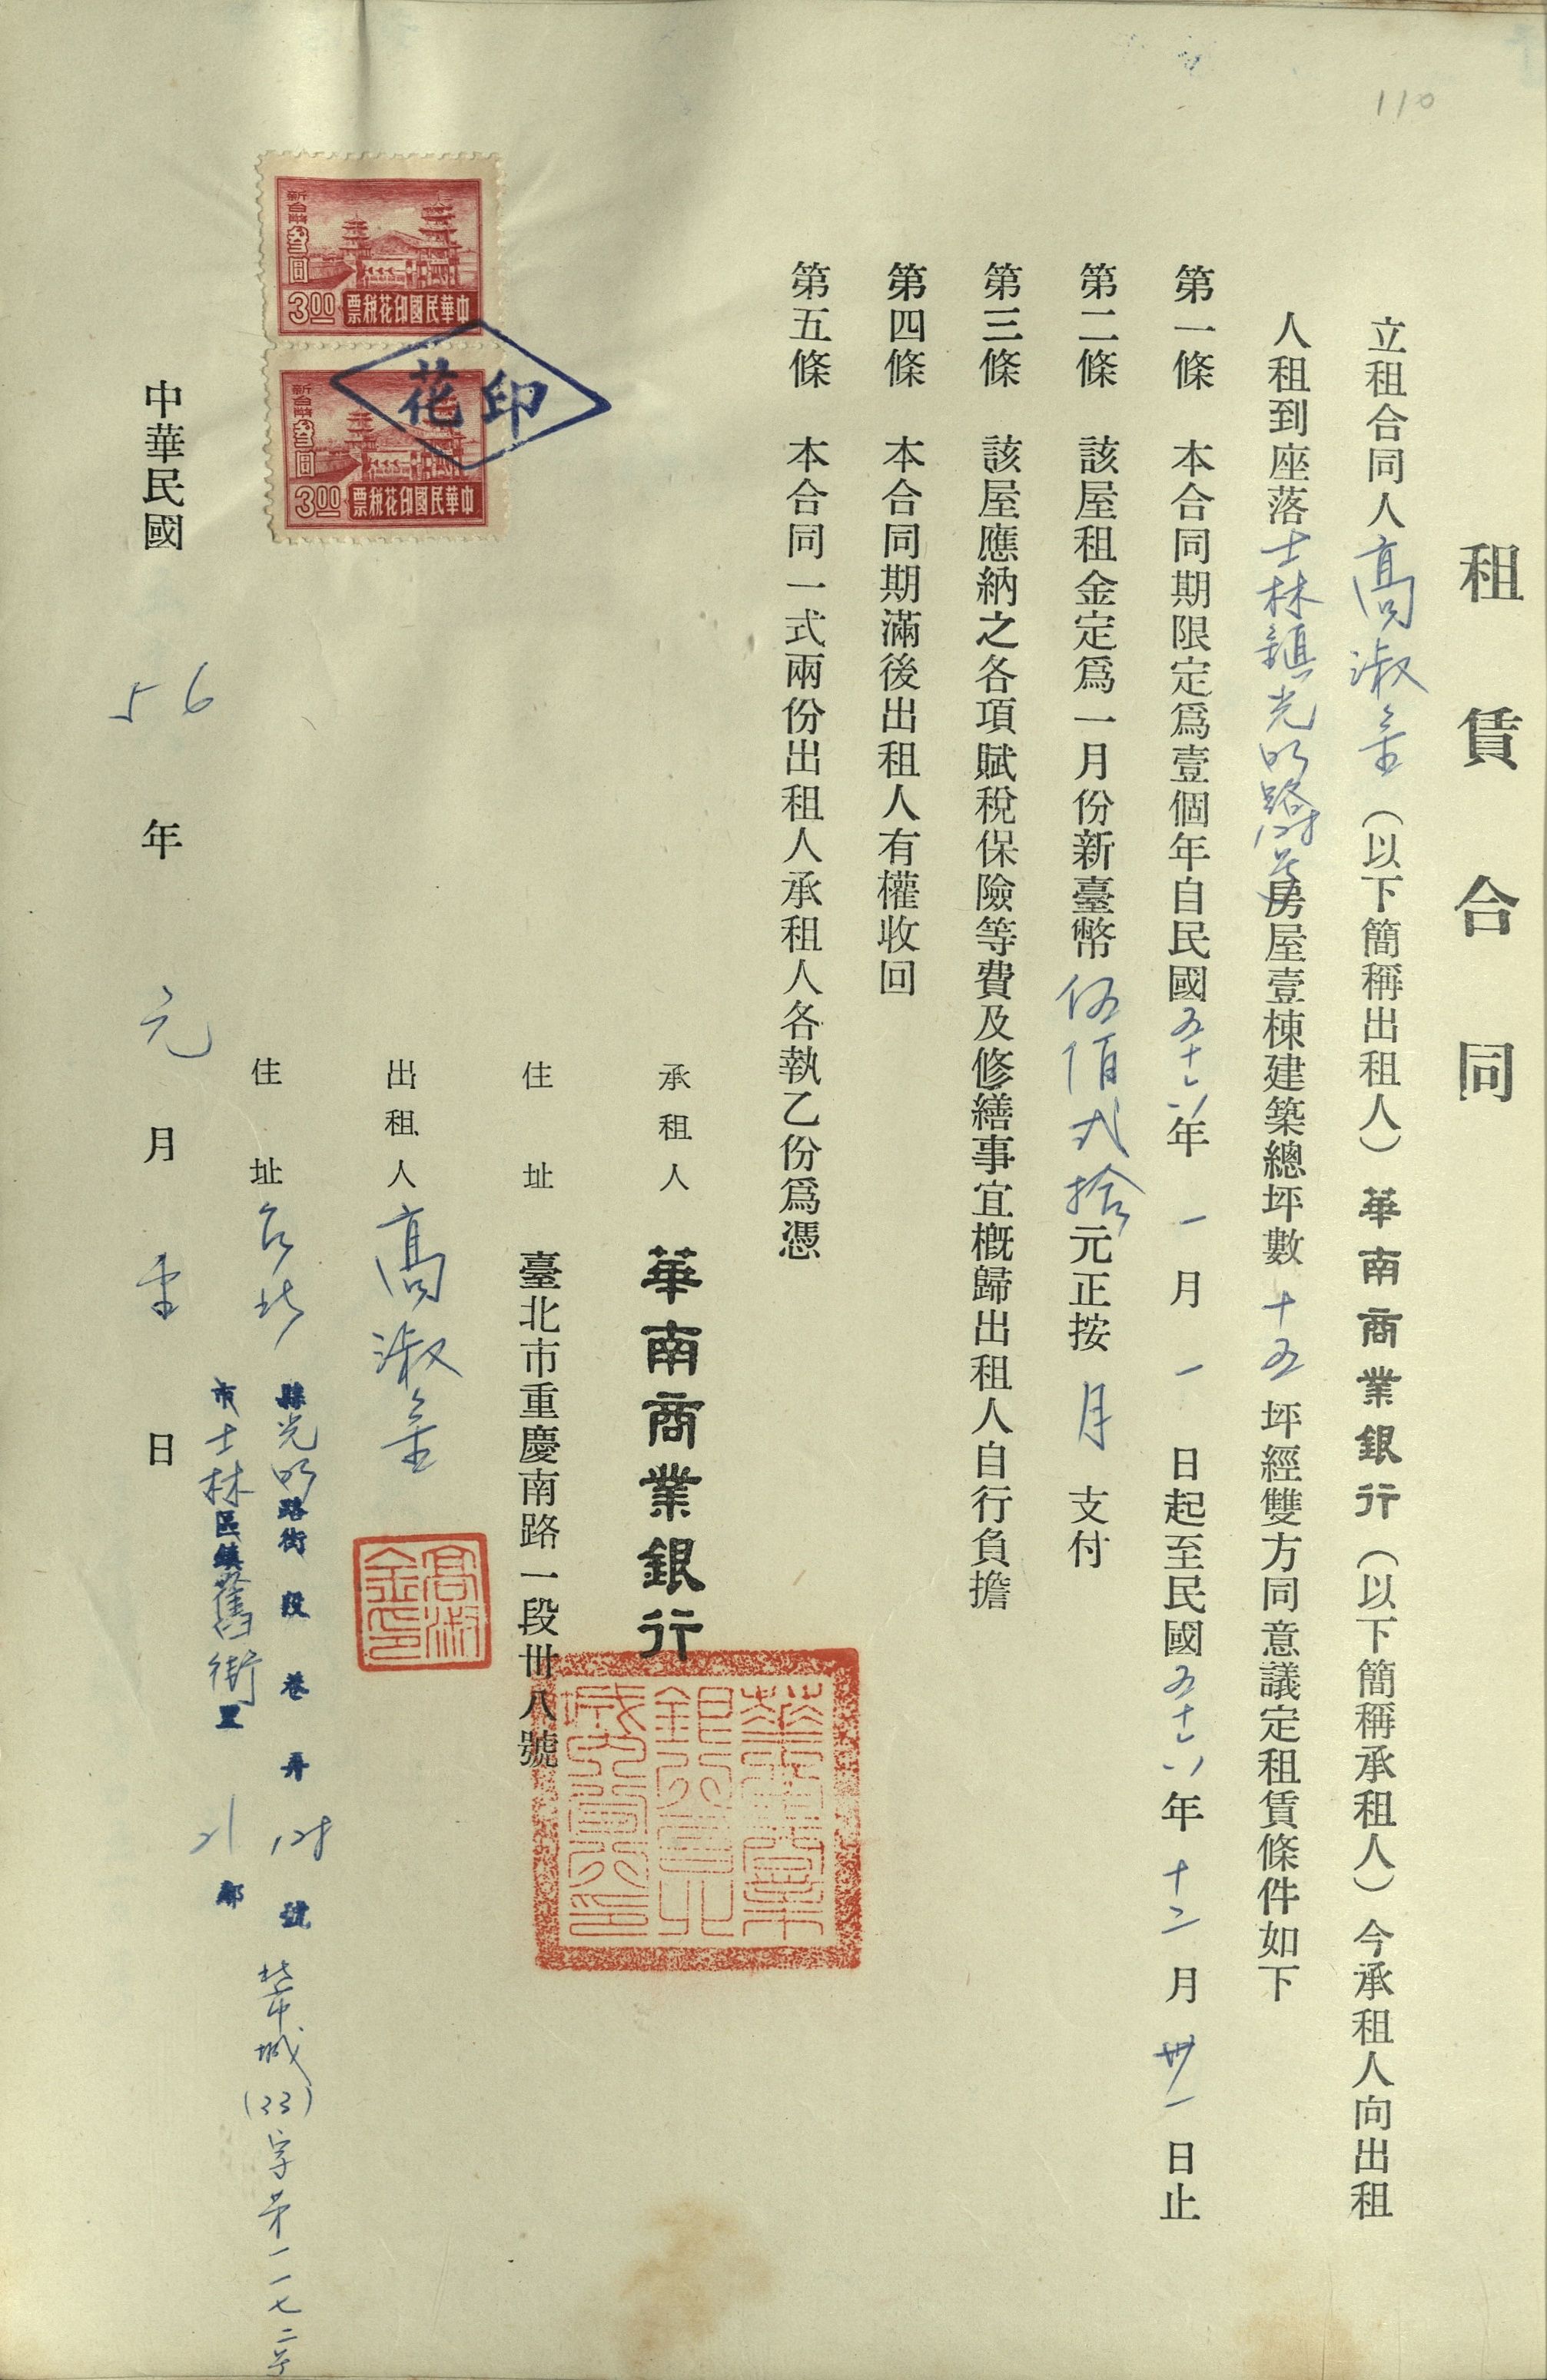 110
租賃合同
立租合同人高淑金（以下簡稱出租人）華南商業銀行（以下簡稱承租人）今承租人向出租
人租到座落士林鎮光明路 房屋壹棟建築總坪數十五坪經雙方同意議定租賃條件如下
第一條 本合同期限定爲壹個年自民國五十六年一月一日起至民國五十六年十二月卅一日止
第二條 該屋租金定爲一月份新臺幣伍佰弍拾元正按月支付
第三條 該屋應納之各項賦稅保險等費及修繕事宜概歸出租人自行負擔
第四條 本合同期滿後出租人有權收回
第五條 本合同一式兩份出租人承租人各執乙份爲憑
承租人 華南商業銀行
住址 臺北市重慶南路一段卅八號
出租人 高淑金
高淑金印
住址 台北
縣光明路街 段 巷 弄 號
市士林區鎮舊街里 21 鄰
字第一一七二号
中華民國 56 年 元 月 日
新台幣叁圓
3.00
中華民國印花稅票
新台幣叁圓
3.00
中華民國印花稅票
印花